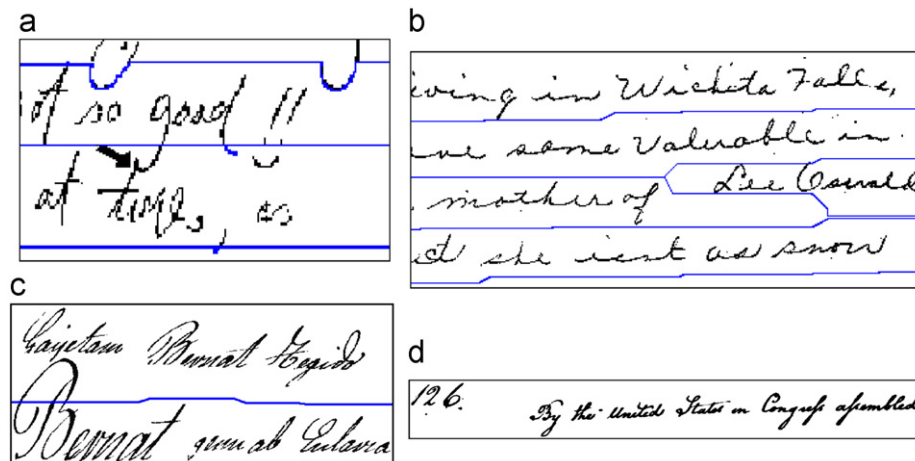 a
ot so good !!
at time, as
b
iving in Wichita Falls,
eve some Valuerable in
mother of Lee Oswald
ed she isent as snow
c
Bernat
Bernat
d
126.
By the United States in Congress assembled